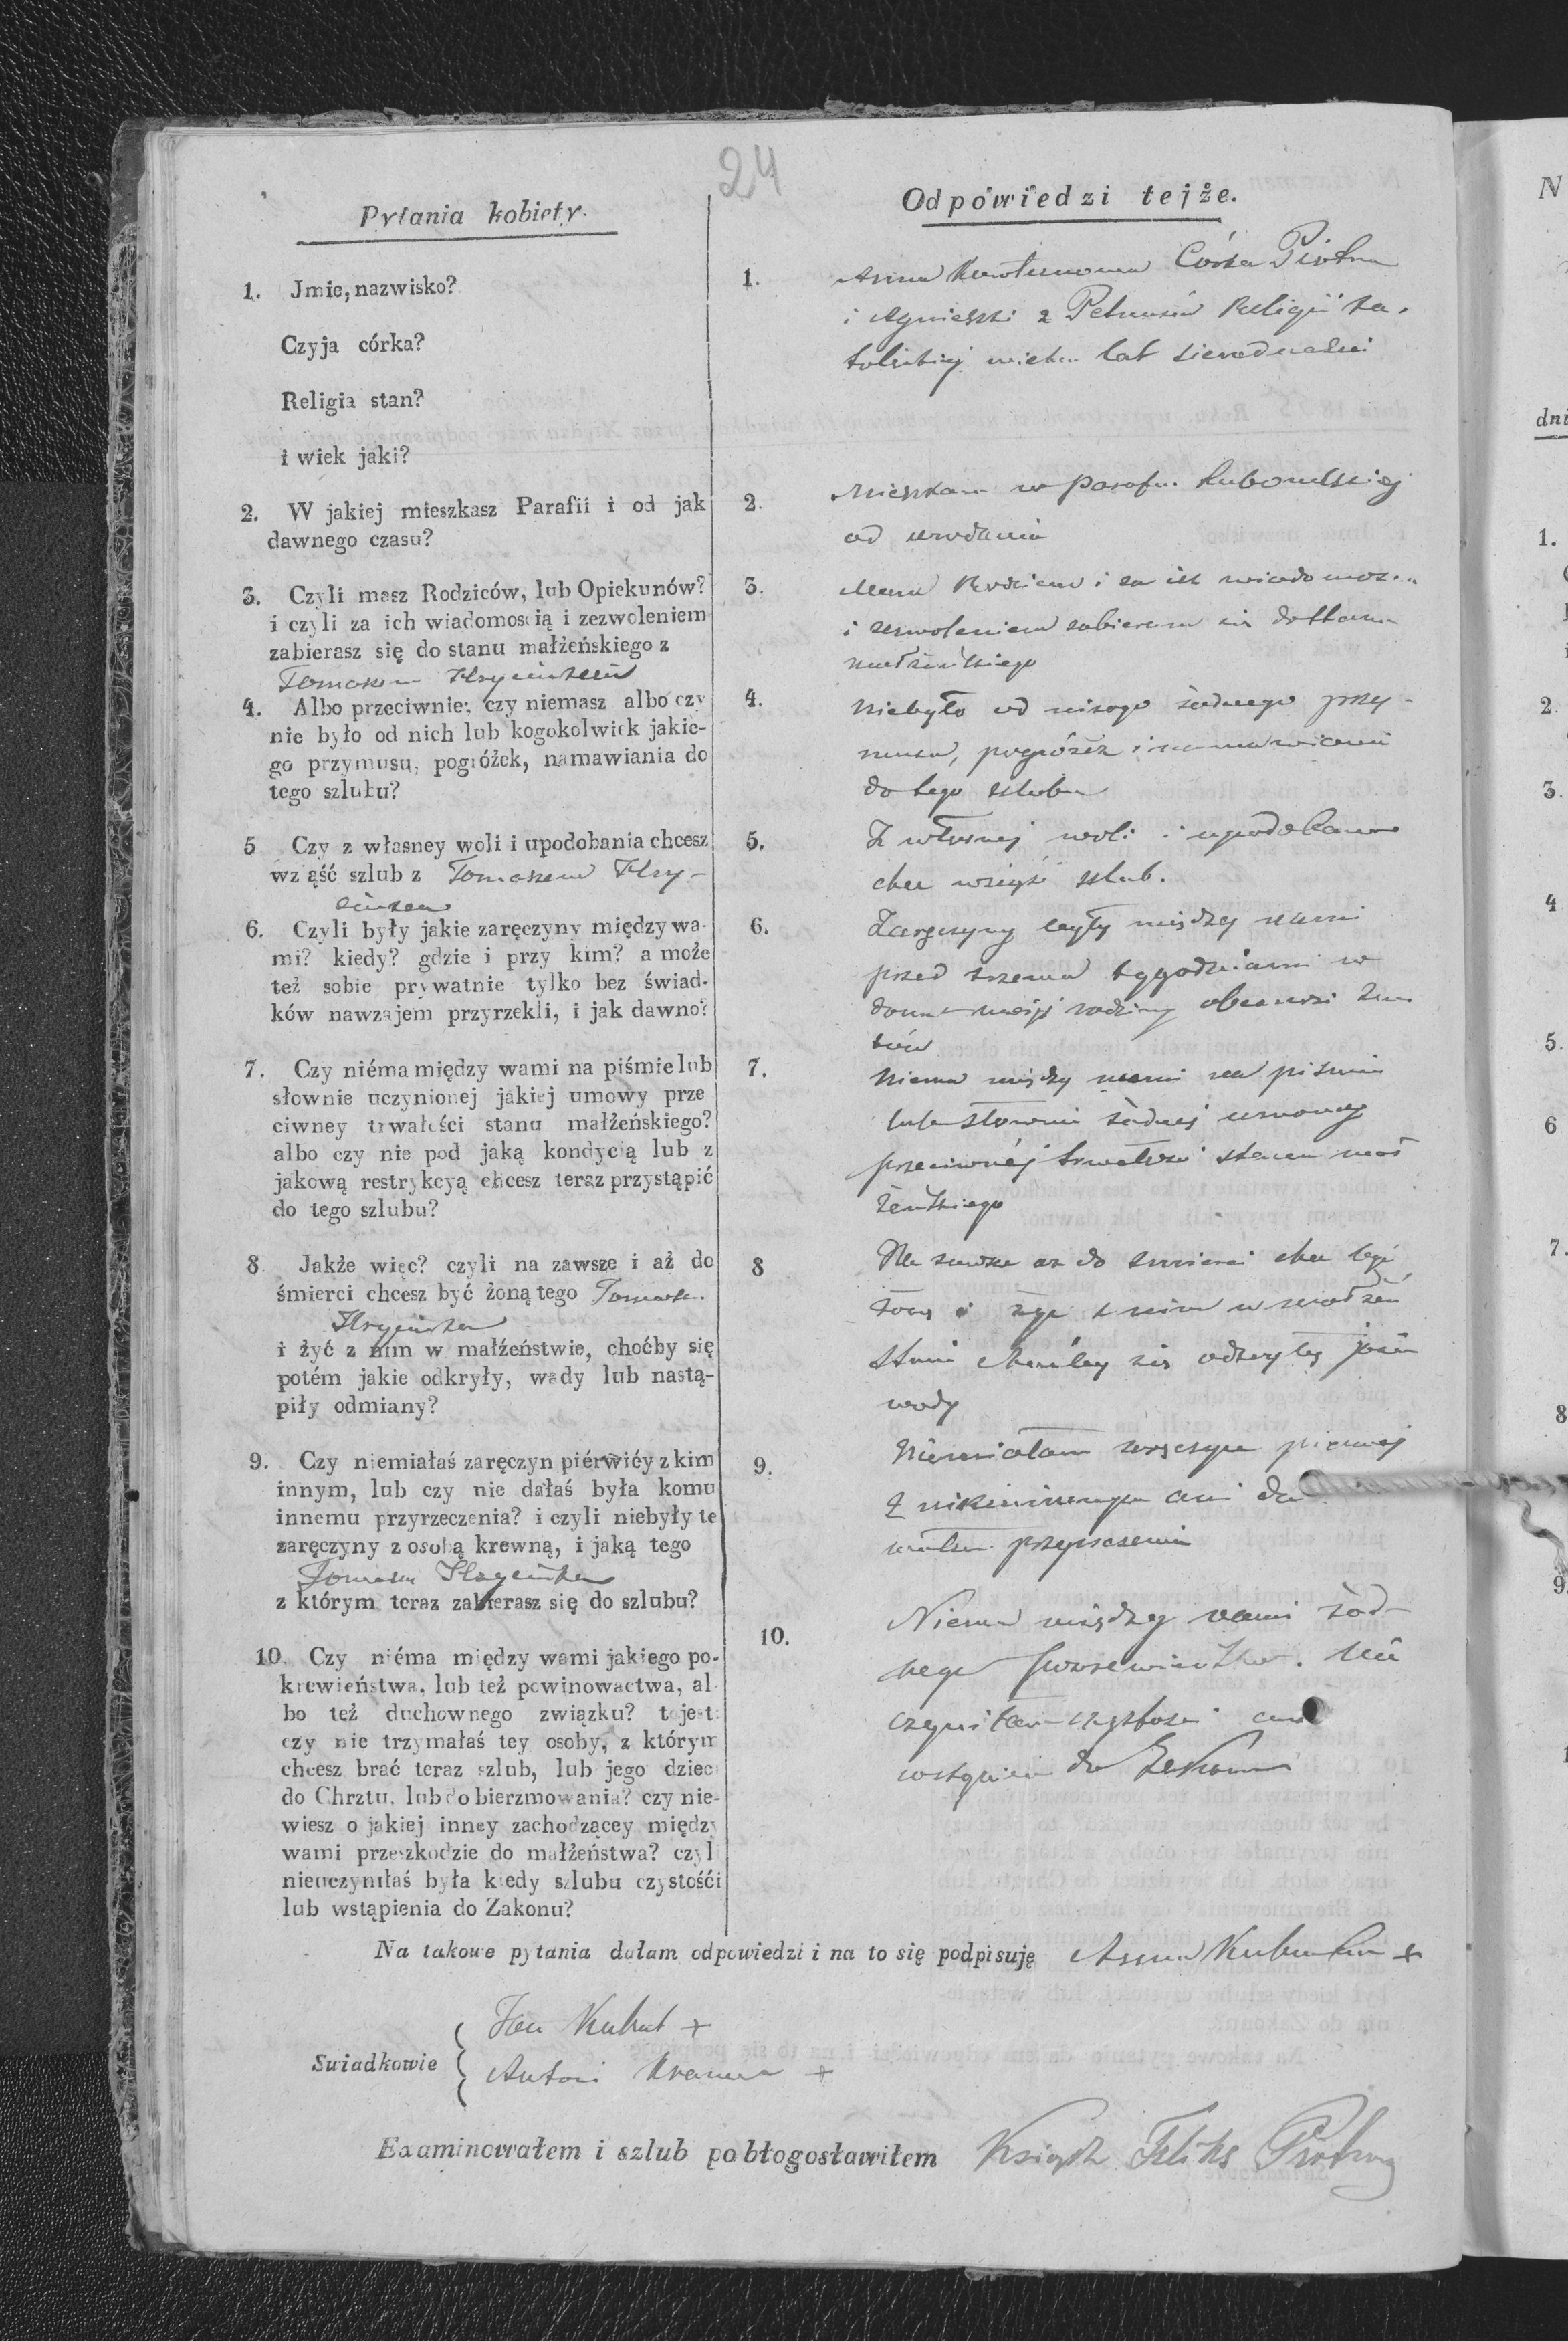 24
Pytania kobiety.
1. Jmie, nazwisko?
Czyja córka?
Religia stan?
i wiek jaki?
2. W jakiej mieszkasz Parafii i od jak
dawnego czasu?
3. Czyli masz Rodziców, lub Opiekunów?
i czyli za ich wiadomoscią i zezwoleniem
zabierasz się do stanu małżeńskiego z
Tomaszem
4. Albo przeciwnie; czy niemasz albo czy
nie było od nich lub kogokolwiek jakie-
go przymusu, pogróżek, namawiania do
tego szlubu?
5 Czy z własney woli i upodobania chcesz
wziąść szlub z Tomaszem
6. Czyli były jakie zaręczyny między wa-
mi? kiedy? gdzie i przy kim? a może
też sobie prywatnie tylko bez świad-
ków nawzajem przyrzekli, i jak dawno?
7. Czy niéma między wami na piśmie lub
słownie uczynionej jakiej umowy prze
ciwney trwałości stanu małżeńskiego?
albo czy nie pod jaką kondycią lub z
jakową restrykcyą chcesz teraz przystąpić
do tego szlubu?
8. Jakże więc? czyli na zawsze i aż do
śmierci chcesz być żoną tego Tomasza
i żyć z nim w małżeństwie, choćby się
potém jakie odkryły, wady lub nastą-
piły odmiany?
9. Czy niemiałaś zaręczyn piérwiéy z kim
innym, lub czy nie dałaś była komu
innemu przyrzeczenia? i czyli niebyły te
zaręczyny z osobą krewną, i jaką tego
Tomasza
z którym teraz zabierasz się do szlubu?
10. Czy niéma między wami jakiego po-
krewieństwa, lub też powinowactwa, al
bo też duchownego związku? to jest:
czy nie trzymałaś tey osoby, z którym
chcesz brać teraz szlub, lub jego dzieci
do Chrztu, lub do bierzmowania? czy nie-
wiesz o jakiej inney zachodzącey między
wami przeszkodzie do małżeństwa? czyli
nieuczyniłaś była kiedy szlubu czystośći
lub wstąpienia do Zakonu?
Odpowiedzi tejże.
1. Anna Córka Piotra
i Agnieszki z Religii ka.
tolickiej wieku lat
2. Mieszkam w parafii
od urodzenia
3. Mam Rodziców i za ich
i zezwoleniem zabieram się do stanu
małżeńskiego
4. Niebyło od nikogo żadnego przy-
musu, pogróżek i namawiania
do tego szlubu
5. Z własnej woli i upodobania
chce wziąść szlub.
6. Zaręczyny były między nami
przed trzema tygodniami w
domu mojej rodziny
7. Niema między nami na piśmie
lub słownie żadnej umowy
przeciwnéj trwałości stanu mał
żeńskiego
8 Na zawsze az do smierci chce być
żoną i żyć z nim w małżeń
stwie choćby się odkryły jakie
wady
9. Niemiałam zaręczyn pierwej
z nikim innym ani da
przyrzeczenia
10. Niema między nami żad-
nego
czystości ani
wstąpienia do Zakonu
Na takowe pytania dałam odpowiedzi i na to się podpisuję Anna +
Swiadkowie
Jan Kubat +
Antoni +
Examinowałem i szlub pobłogosławiłem Ksiądz Feliks
N
dni
1.
2.
3.
4
5.
6
7.
8
9